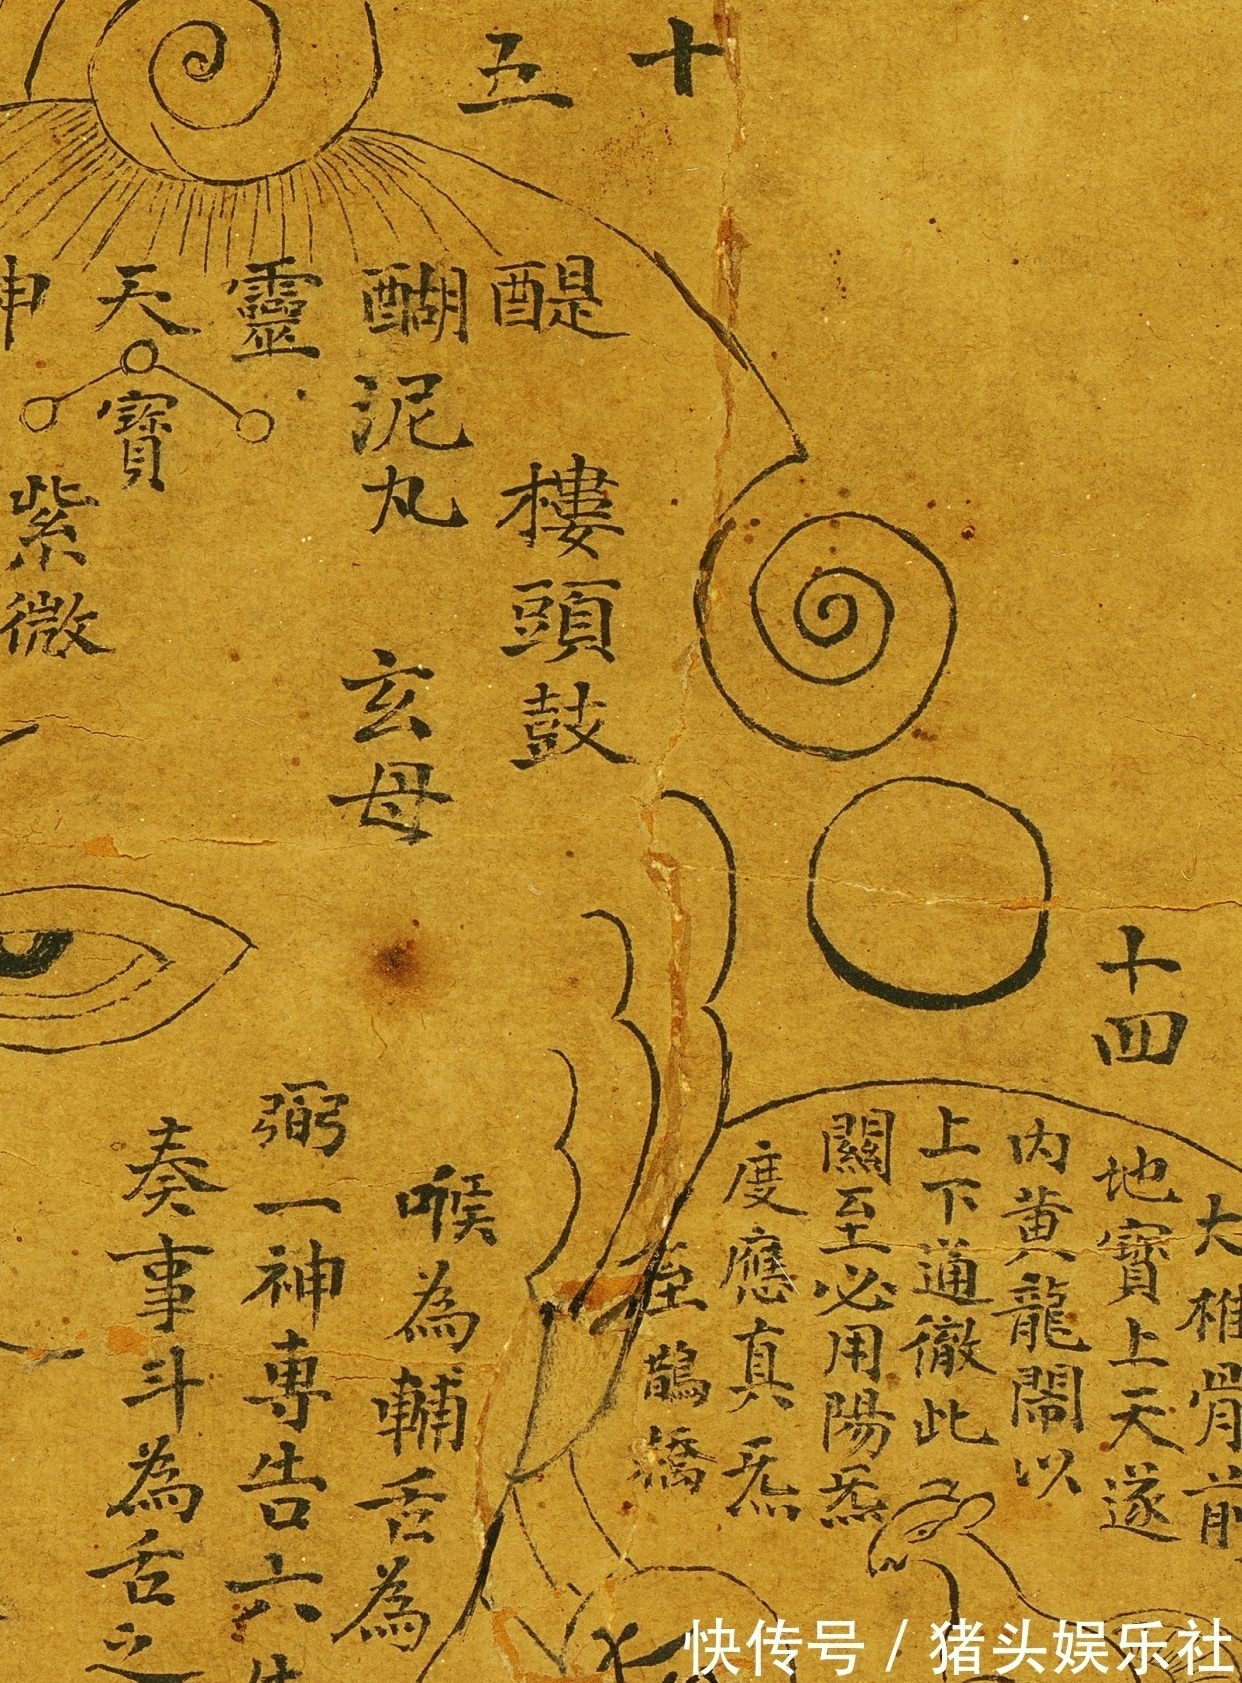 十五
醍
樓頭鼓
醐
泥丸
玄母
靈
天
寶
紫微
十四
大椎骨前
地寶上天遂
内黄龍閙以
上下通徹此
關至必用陽炁
度應真炁
至鵲橋
喉為輔舌為
弼一神專告六
奏事斗為舌之
快传号 / 猪头娱乐社